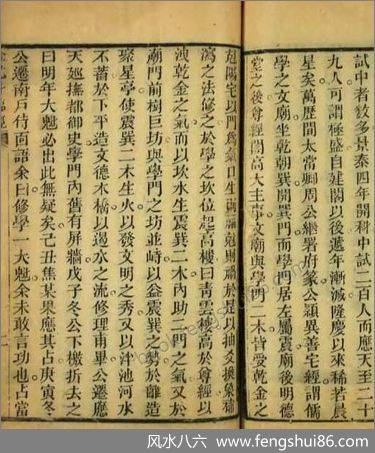 試中者數多景泰四年開科中試二百人而應天至二十
九人可謂極盛自建閣以後遞年漸減隆慶以來稀若晨
星矣萬曆間太常卿周公繼署府篆公穎異善宅經謂儒
學之文廟坐乾朝巽開巽門而學門居左屬震廟後明德
堂之後尊經閣高大主事文廟與學門二木皆受乾金之
尅陽宅以門為氣口生則福尅則禍於是以抽爻換象補
瀉之法修之於學之坎位起高樓曰青雲樓高於尊經以
洩乾金之氣而以坎水生震巽二木內助二門之氣又於
廟門前樹巨坊與學門之坊並峙以益震巽之勢於離造
聚星亭使震巽二木生火以發文明之秀又以泮池河水
不蓄於下平造文德木橋以遏水之流修理甫畢公遷應
天廵撫都御史學門內舊有屏牆戊子冬公下檄折去之
曰明年大魁必出此無疑矣己丑焦某果應其占庚寅冬
公遷南戶侍面語余曰修學一大魁余未敢言功也占當
风水八六 www.fengshui86.com